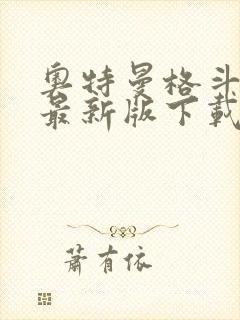 奥特曼格斗
最新版下载
萧有依